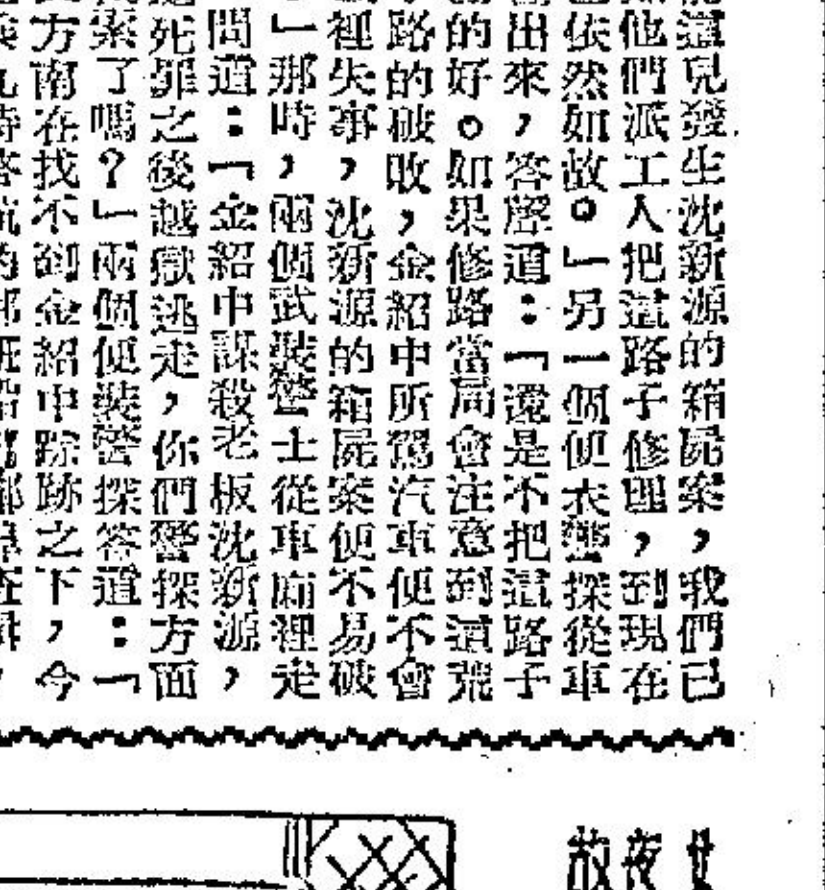 這兒發生沈新源的箱屍案，我們已
他們派工人把這路子修理，到現在
依然如故。」另一個便衣警探從車
出來，答應道：「還是不把這路子
的好。如果修路當局會注意到這荒
路的破敗，金紹中所駕汽車便不會
裡失事，沈新源的箱屍案便不易破
」那時，兩個武裝警士從車廂裡走
問道：「金紹中謀殺老板沈新源，
死罪之後越獄逃走，你們警探方面
索了嗎？」兩個便裝警探答道：「
方南在找不到金紹中踪跡之下，今
夜
故